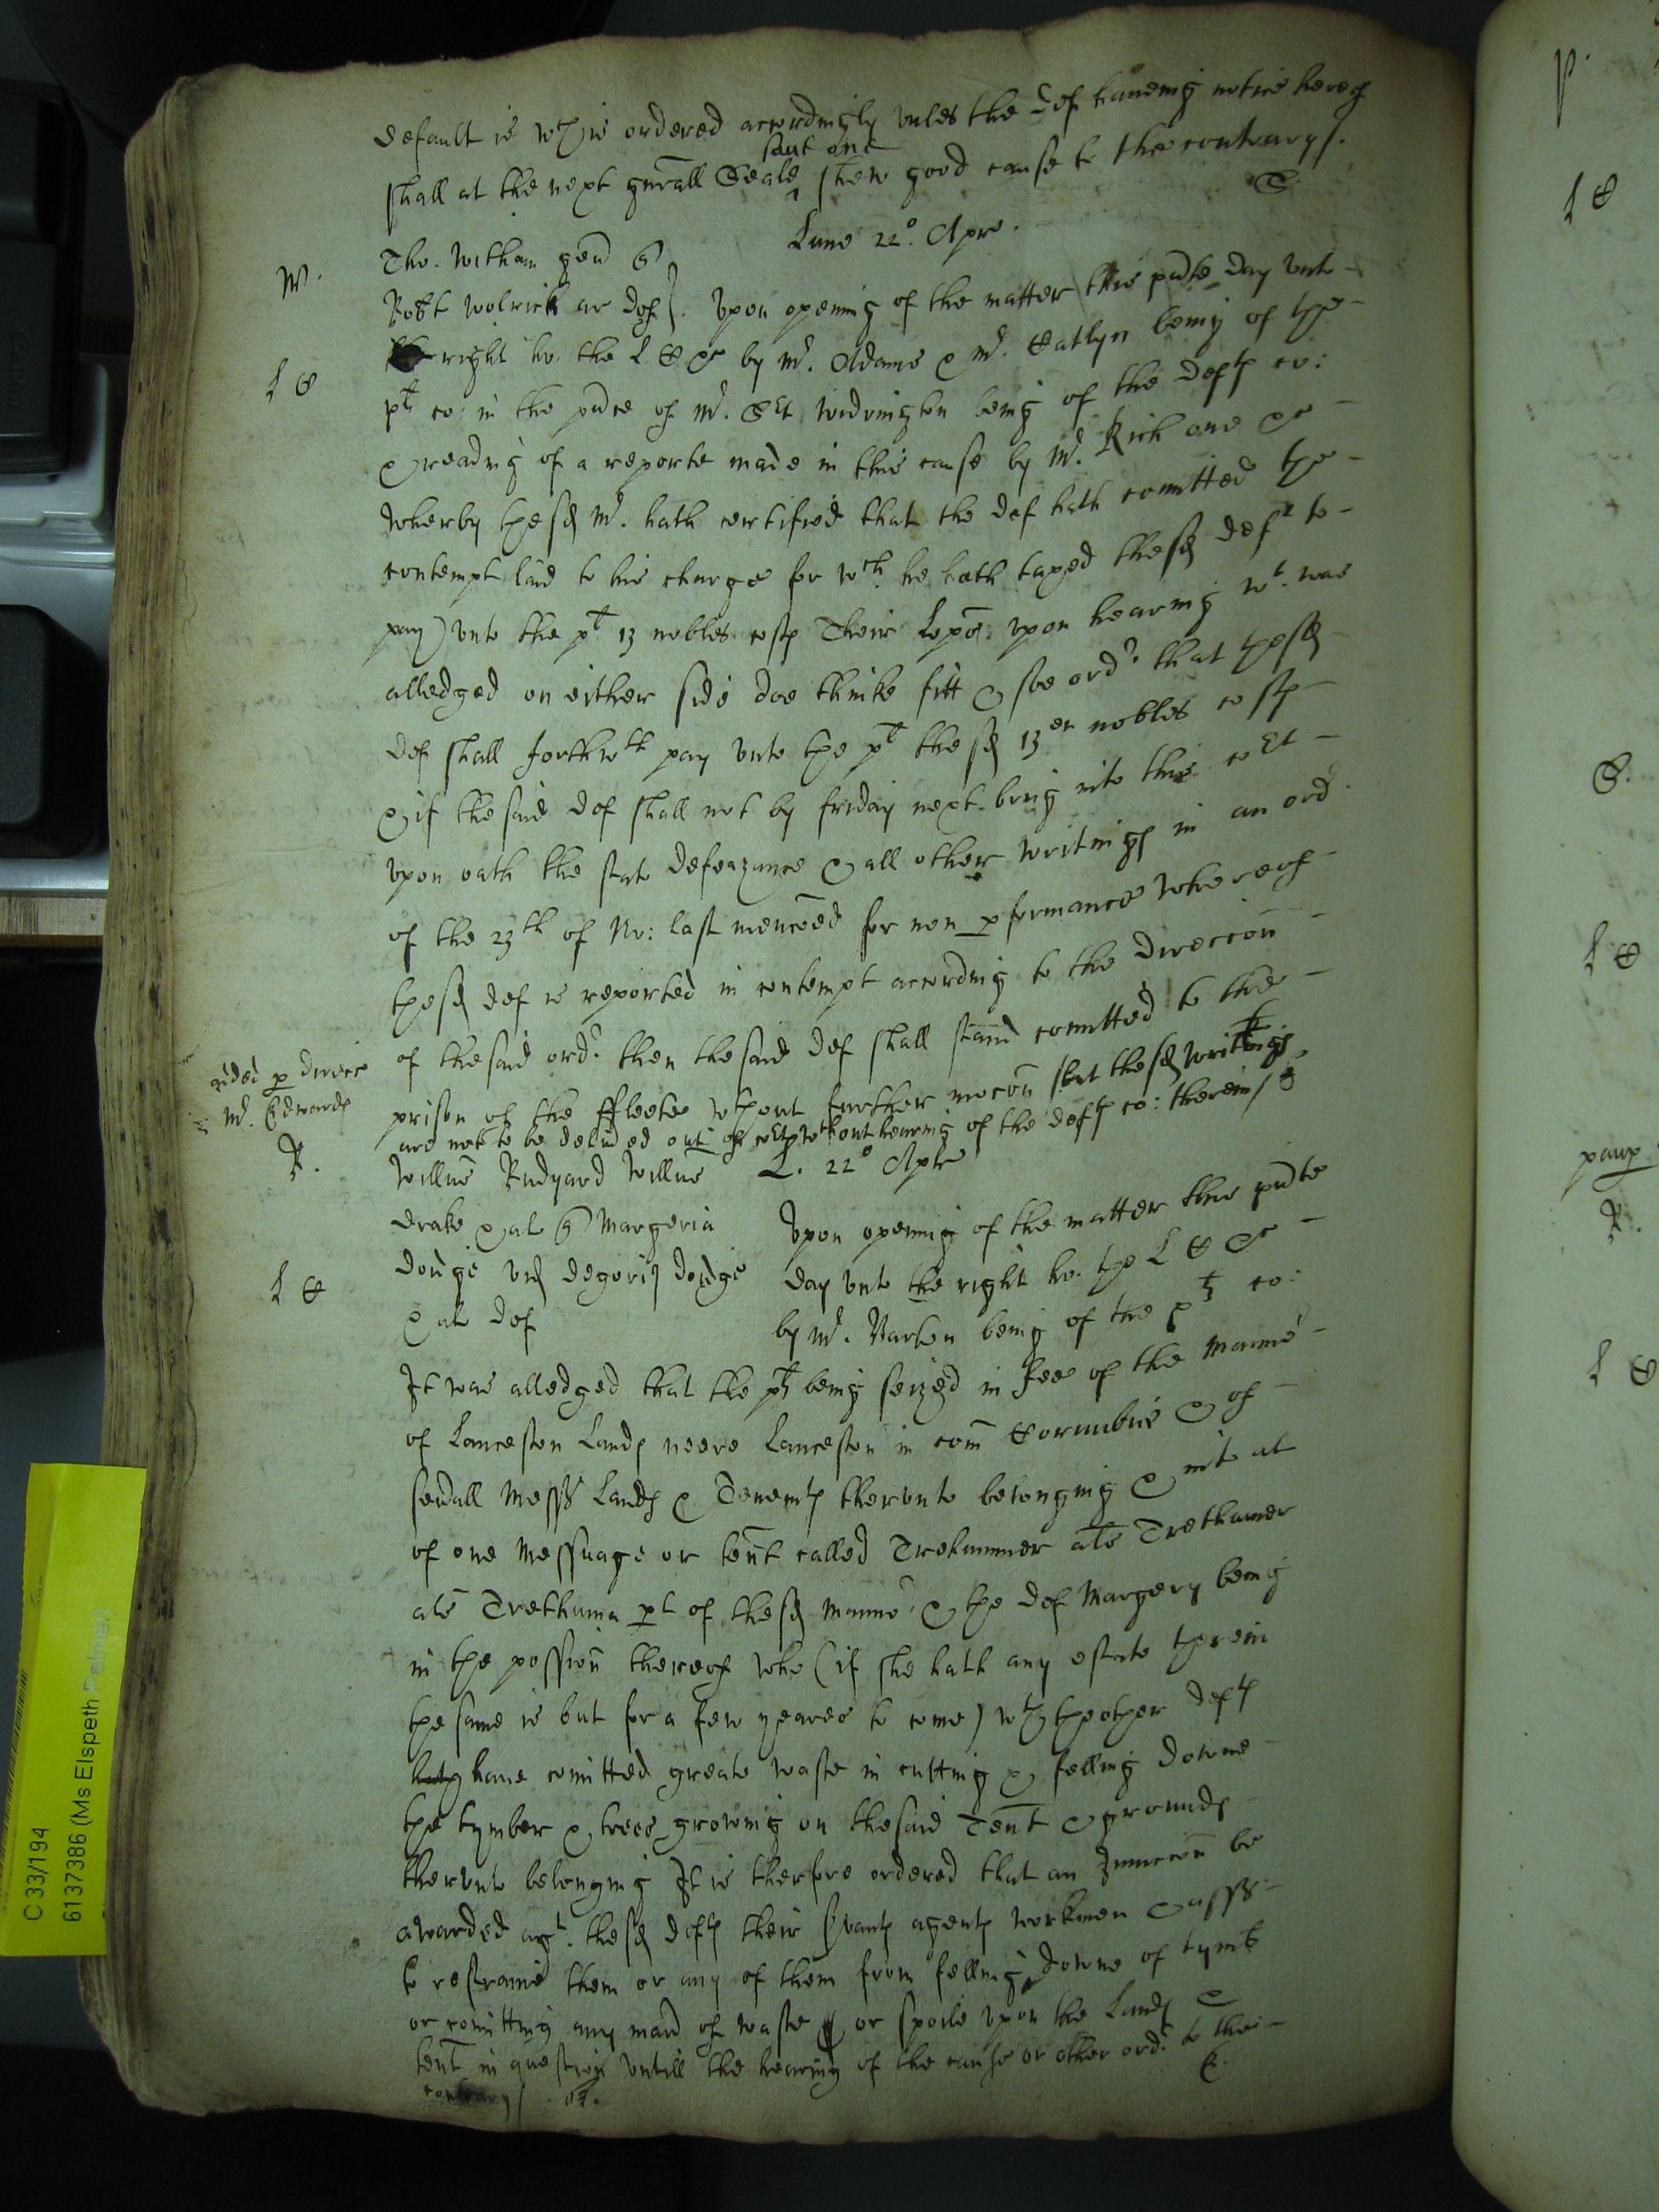 default is wch is ordered accordingly vnles the def haueing notice hereof
shall at the next gnrall Seale saue one shew good cause to the contrary/.
S.
Lune 22°. Apre.
W.
Tho. Witham gen q
Robt Wolrich ar def. Vpon opening of the matter this pnte day vnto
L C
right ho. the L C &c by Mr. Adams & Mr. Catlyn being of the
plt co: in the pnce of Mr. Sct Widrington being of the defts co:
& reading of a reporte made in this cause by Mr. Rich one &c
Wherby the sd Mr. hath certified that the def hath comitted the
contempt laid to his charge for wch he hath taxed the sd deft to
pay vnto the plt 13 nobles costs Their Lopps. vpon hearing wt. was
alledged on either side doe thinke fitt & soe ordr. that the sd
def shall forthwth pay vnto the plt the sd 13en nobles costs
& if the said def shall not by friday next bring into this co:rt
vpon oath the stat defeazance & all other writings in an ord.
of the 23th of No: last mencoed for non pformance whereof
the sd def is reported in contempt according to the direccon
of the said ordr. then the said def shall stand comitted to the
aded p direcc
Mr. Edwards
prison of the ffleete wthout further mocon but the sd writings
are not to be deliued out of cort wthout hearing of the defts co: therein/
R.
Willus Rudyard Willus L. 22° Apre
drake & al q Margeria Vpon opening of the matter this pnte
L C
dodge vid degorij dodge day vnto the right ho. the L C &c
& al def by Mr. Barton being of the plts co:
It was alledged that the plts being seized in Fee of the Manno
of Lanceston Lands neere Lanceston in com Cornubie & of
seuall Mess Lands & Tenemts thervnto belonging & int al
of one Messuage or tent called Trehummer als Trethamer
als Trethuma pt of the sd Manno & the def Margery being
in the possion thereof who (if she hath any estate therein
the same is but for a few yeares to come) wth the other defts
haue comitted greate waste in cutting & felling downe
the tymber & trees growing on the said Tent & grounds
thervnto belonging It is therfore ordered that an Iniuccon be
awarded agt. the sd defts their seruants agents workmen & asss
to restraine them or any of them from felling downe of tymb
or comitting any mann of waste or spoile vpon the Lands &
tent in question vntill the hearing of the cause or other ordr. to the
contrary/.
R.
C 33/194
6137386 (Ms Elspeth Palmer)
p.
L C
S.
L C
paup
R.
L C